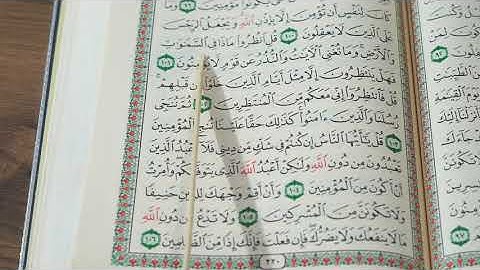 يَكُونُوا۟ مُؤْمِنِينَ ٩٩ وَمَا
كَانَ لِنَفْسٍ أَن تُؤْمِنَ إِلَّا بِإِذْنِ ٱللَّهِ وَيَجْعَلُ ٱلرِّجْسَ
عَلَى ٱلَّذِينَ لَا يَعْقِلُونَ ١٠٠ قُلِ ٱنظُرُوا۟ مَاذَا فِى ٱلسَّمَٰوَٰتِ
وَٱلْأَرْضِ وَمَا تُغْنِى ٱلْءَايَٰتُ وَٱلنُّذُرُ عَن قَوْمٍ لَّا يُؤْمِنُونَ ١٠١
فَهَلْ يَنتَظِرُونَ إِلَّا مِثْلَ أَيَّامِ ٱلَّذِينَ خَلَوْا۟ مِن قَبْلِهِمْ
قُلْ فَٱنتَظِرُوٓا۟ إِنِّى مَعَكُم مِّنَ ٱلْمُنتَظِرِينَ ١٠٢ ثُمَّ نُنَجِّى
رُسُلَنَا وَٱلَّذِينَ ءَامَنُوا۟ كَذَٰلِكَ حَقًّا عَلَيْنَا نُنجِ ٱلْمُؤْمِنِينَ
١٠٣ قُلْ يَٰٓأَيُّهَا ٱلنَّاسُ إِن كُنتُمْ فِى شَكٍّ مِّن دِينِى فَلَآ أَعْبُدُ ٱلَّذِينَ
تَعْبُدُونَ مِن دُونِ ٱللَّهِ وَلَٰكِنْ أَعْبُدُ ٱللَّهَ ٱلَّذِى يَتَوَفَّىٰكُمْ وَأُمِرْتُ
أَنْ أَكُونَ مِنَ ٱلْمُؤْمِنِينَ ١٠٤ وَأَنْ أَقِمْ وَجْهَكَ لِلدِّينِ حَنِيفًا
وَلَا تَكُونَنَّ مِنَ ٱلْمُشْرِكِينَ ١٠٥ وَلَا تَدْعُ مِن دُونِ ٱللَّهِ
مَا لَا يَنفَعُكَ وَلَا يَضُرُّكَ فَإِن فَعَلْتَ فَإِنَّكَ إِذًا مِّنَ ٱلظَّٰلِمِينَ ١٠٦
٢٢٠